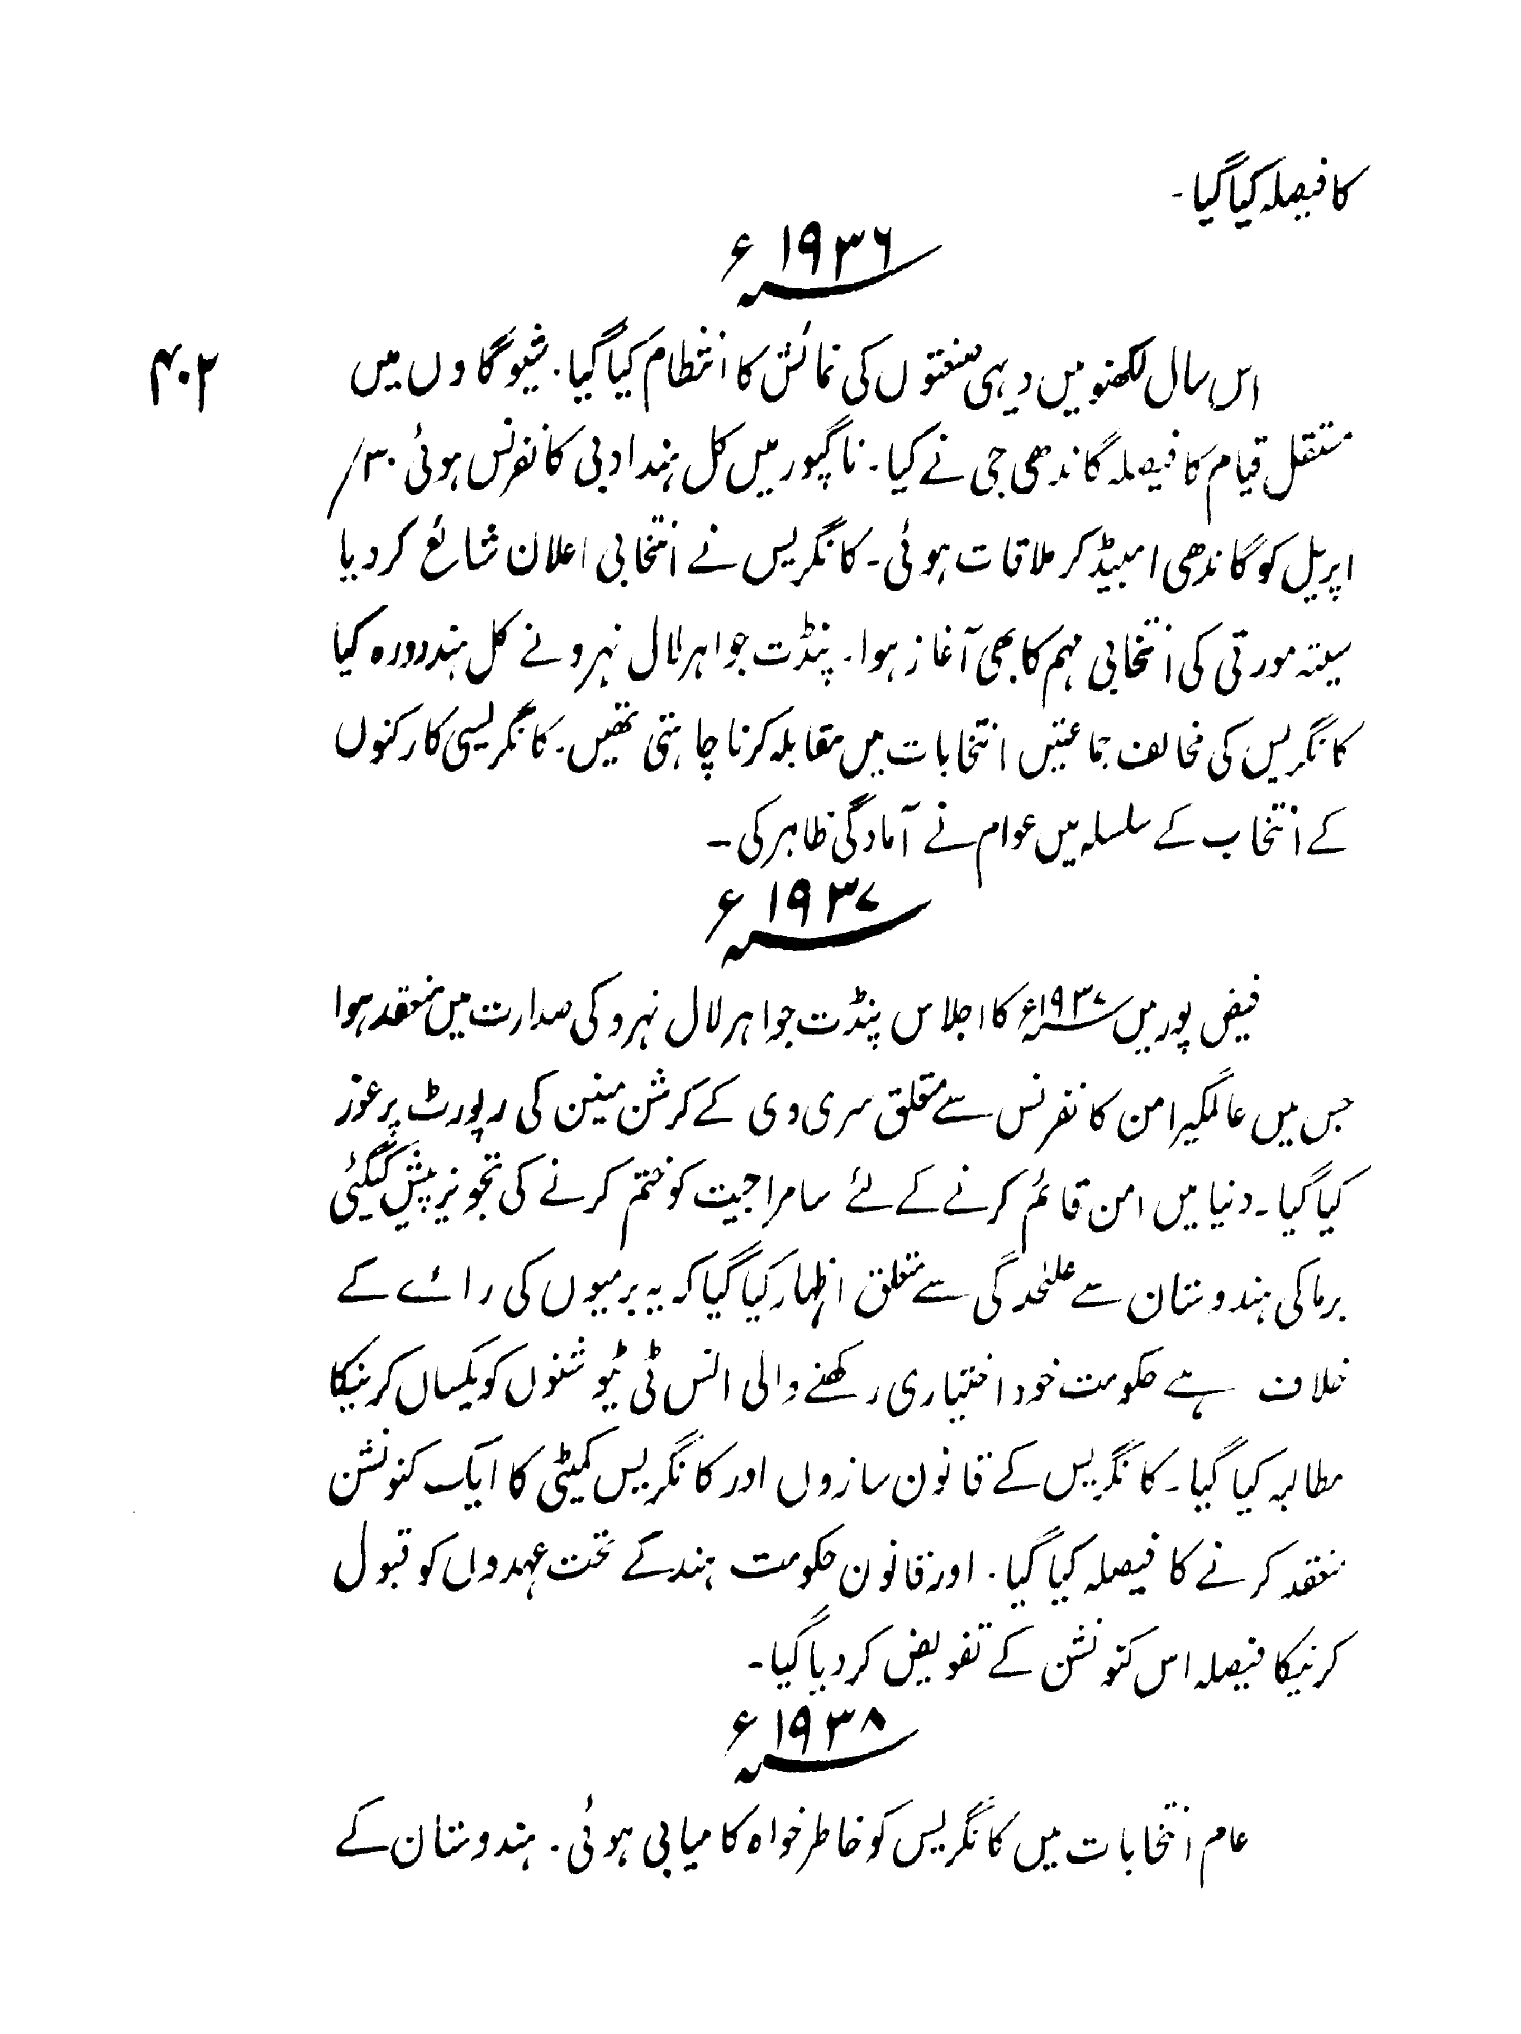 کا فیصلہ کیا گیا۔
۱۹۳۶ء
۴۰۲
اس سال لکھنو میں دیہی صنعتوں کی نمائش کا انتظام کیا گیا۔ شیوگاوں میں
مستقل قیام کا فیصلہ گاندھی جی نے کیا۔ ناگپور میں کل ہند ادبی کانفرنس ہوئی ۳۰/
اپریل کو گاندھی امبیڈکر ملاقات ہوئی۔ کانگریس نے انتخابی اعلان شائع کر دیا
ستیہ مورتی کی انتخابی مہم کا بھی آغاز ہوا۔ پنڈت جواہر لال نہرو نے کل ہند دورہ کیا
کانگریس کی مخالف جماعتیں انتخابات میں مقابلہ کرنا چاہتی تھیں۔ کانگریسی کارکنوں
کے انتخاب کے سلسلہ میں عوام نے آمادگی ظاہر کی۔
۱۹۳۷ء
فیض پور میں ۱۹۳۷ء کا اجلاس پنڈت جواہر لال نہرو کی صدارت میں منعقد ہوا
جس میں عالمگیر امن کانفرنس سے متعلق سری وی کے کرشن مینن کی رپورٹ پر غور
کیا گیا۔ دنیا میں امن قائم کرنے کے لئے سامراجیت کو ختم کرنے کی تجویز پیش کیگئی
برما کی ہندوستان سے علٰحدگی سے متعلق اظہار کیا گیا کہ یہ برمیوں کی رائے کے
خلاف ہے حکومت خود اختیاری رکھنے والی انس ٹی ٹیوشنوں کو یکساں کرنیکا
مطالبہ کیا گیا۔ کانگریس کے قانون سازوں اور کانگریس کمیٹی کا ایک کنونشن
منعقد کرنے کا فیصلہ کیا گیا۔ اور قانون حکومت ہند کے تحت عہدوں کو قبول
کرنیکا فیصلہ اس کنونشن کے تفویض کر دیا گیا۔
۱۹۳۸ء
عام انتخابات میں کانگریس کو خاطر خواہ کامیابی ہوئی۔ ہندوستان کے